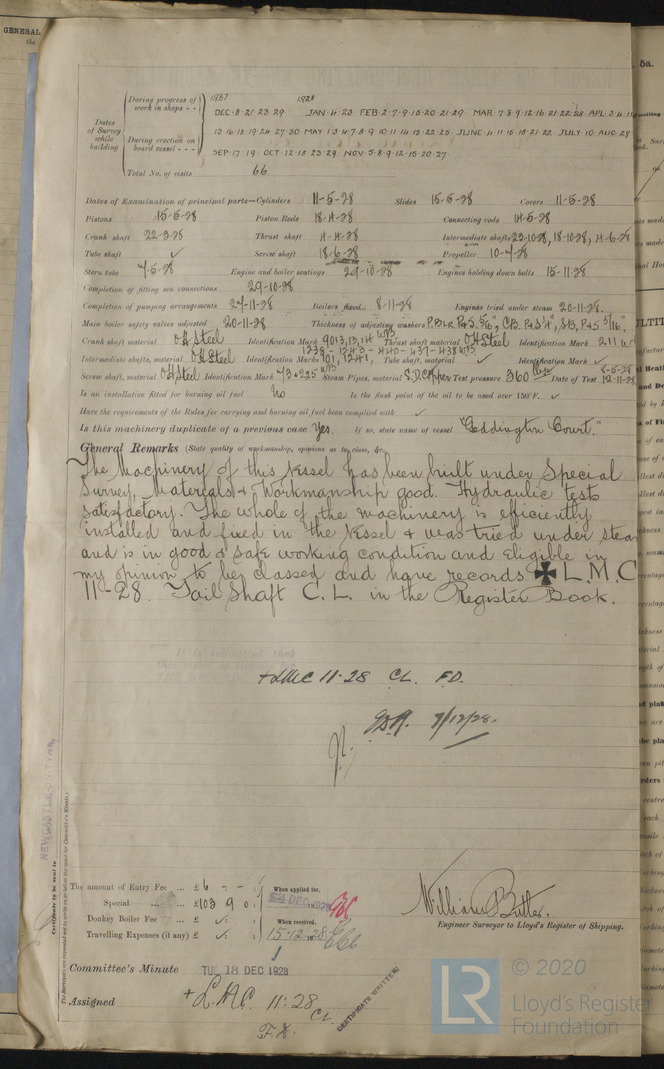 GENERAL
the
5a.
During progress of work in shops - -
1927 1928
DEC·8·21·23·29. JAN·4·23 FEB·2·7·9·15·20·21·29. MAR·7·8·9·12·16·21·22·28·APL·3·4·11
Dates of Survey while building
13·16·18·19·24·27·30 MAY·1·3·4·7·8·9·10·11·14·15·22·25 JUNE·4·11·15·18·21·22 JULY 10 AUG·29
During erection on board vessel - - -
SEP·17·19·OCT·12·18·23·29 NOV·5·8·9·12·15·20·27.
Total No. of visits 66
Dates of Examination of principal parts—Cylinders 11-5-28 Slides 15-5-28 Covers 11-5-28
Pistons 15-5-28 Piston Rods 18-4-28 Connecting rods 14-5-28
Crank shaft 22-3-28 Thrust shaft 4-4-28 Intermediate shafts 23-10-28, 18-10-28, 4-6-28
Tube shaft ✓ Screw shaft 18-6-28 Propeller 10-7-28
Stern tube 7-5-28 Engine and boiler seatings 29-10-28 Engines holding down bolts 15-11-28
Completion of fitting sea connections 29-10-28
Completion of pumping arrangements 27-11-28 Boilers fixed 8-11-28 Engines tried under steam 20-11-28.
Main boiler safety valves adjusted 20-11-28 Thickness of adjusting washers
Crank shaft material OH Steel Identification Mark 9013,13,14 Thrust shaft material OH Steel Identification Mark 211
1238 - 1243 - 440 - 437 - 438
Intermediate shafts, material OH Steel Identification Marks 101, 1241, Tube shaft, material ✓ Identification Mark ✓
Screw shaft, material OH Steel Identification Mark 73+225 Steam Pipes, material S.D. Copper Test pressure 360 lbs Date of Test 8-5-28 12-11-28
Is an installation fitted for burning oil fuel No Is the flash point of the oil to be used over 150°F. ✓
Have the requirements of the Rules for carrying and burning oil fuel been complied with ✓
Is this machinery duplicate of a previous case Yes. If so, state name of vessel "Eddington Court."
General Remarks (State quality of workmanship, opinions as to class, &c.
The Machinery of this Vessel has been built under Special
Survey, Materials & Workmanship good. Hydraulic tests
satisfactory. The whole of the machinery is efficiently
installed and fixed in the Vessel & was tried under steam
and is in good & safe working condition and eligible in
my opinion to be classed and have records. ✠ L.M.C
11-28. Tail Shaft C.L. in the Register Book.
It is submitted that
+LMC 11·28 CL. F.D.
7/12/28.
NEWCASTLE-ON-TYNE
Certificate to be sent to
(The Surveyors are requested not to write on or below the space for Committee's Minute.)
The amount of Entry Fee ... £ 6 - - : When applied for,
Special ... £ 103 9 0 : DEC 1928
Donkey Boiler Fee ... £ ✓ : When received,
Travelling Expenses (if any) £ ✓ : 15·12·28
William Butler.
Engineer Surveyor to Lloyd's Register of Shipping.
Committee's Minute TUE 18 DEC 1928
Assigned + L.M.C 11:28
CL.
F.D.
CERTIFICATE WRITTEN
LR
© 2020
Lloyd's Register
Foundation